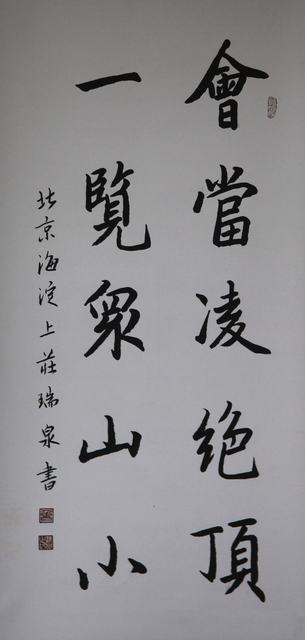 會當凌絕頂
一覽眾山小
北京海淀上莊瑞泉書